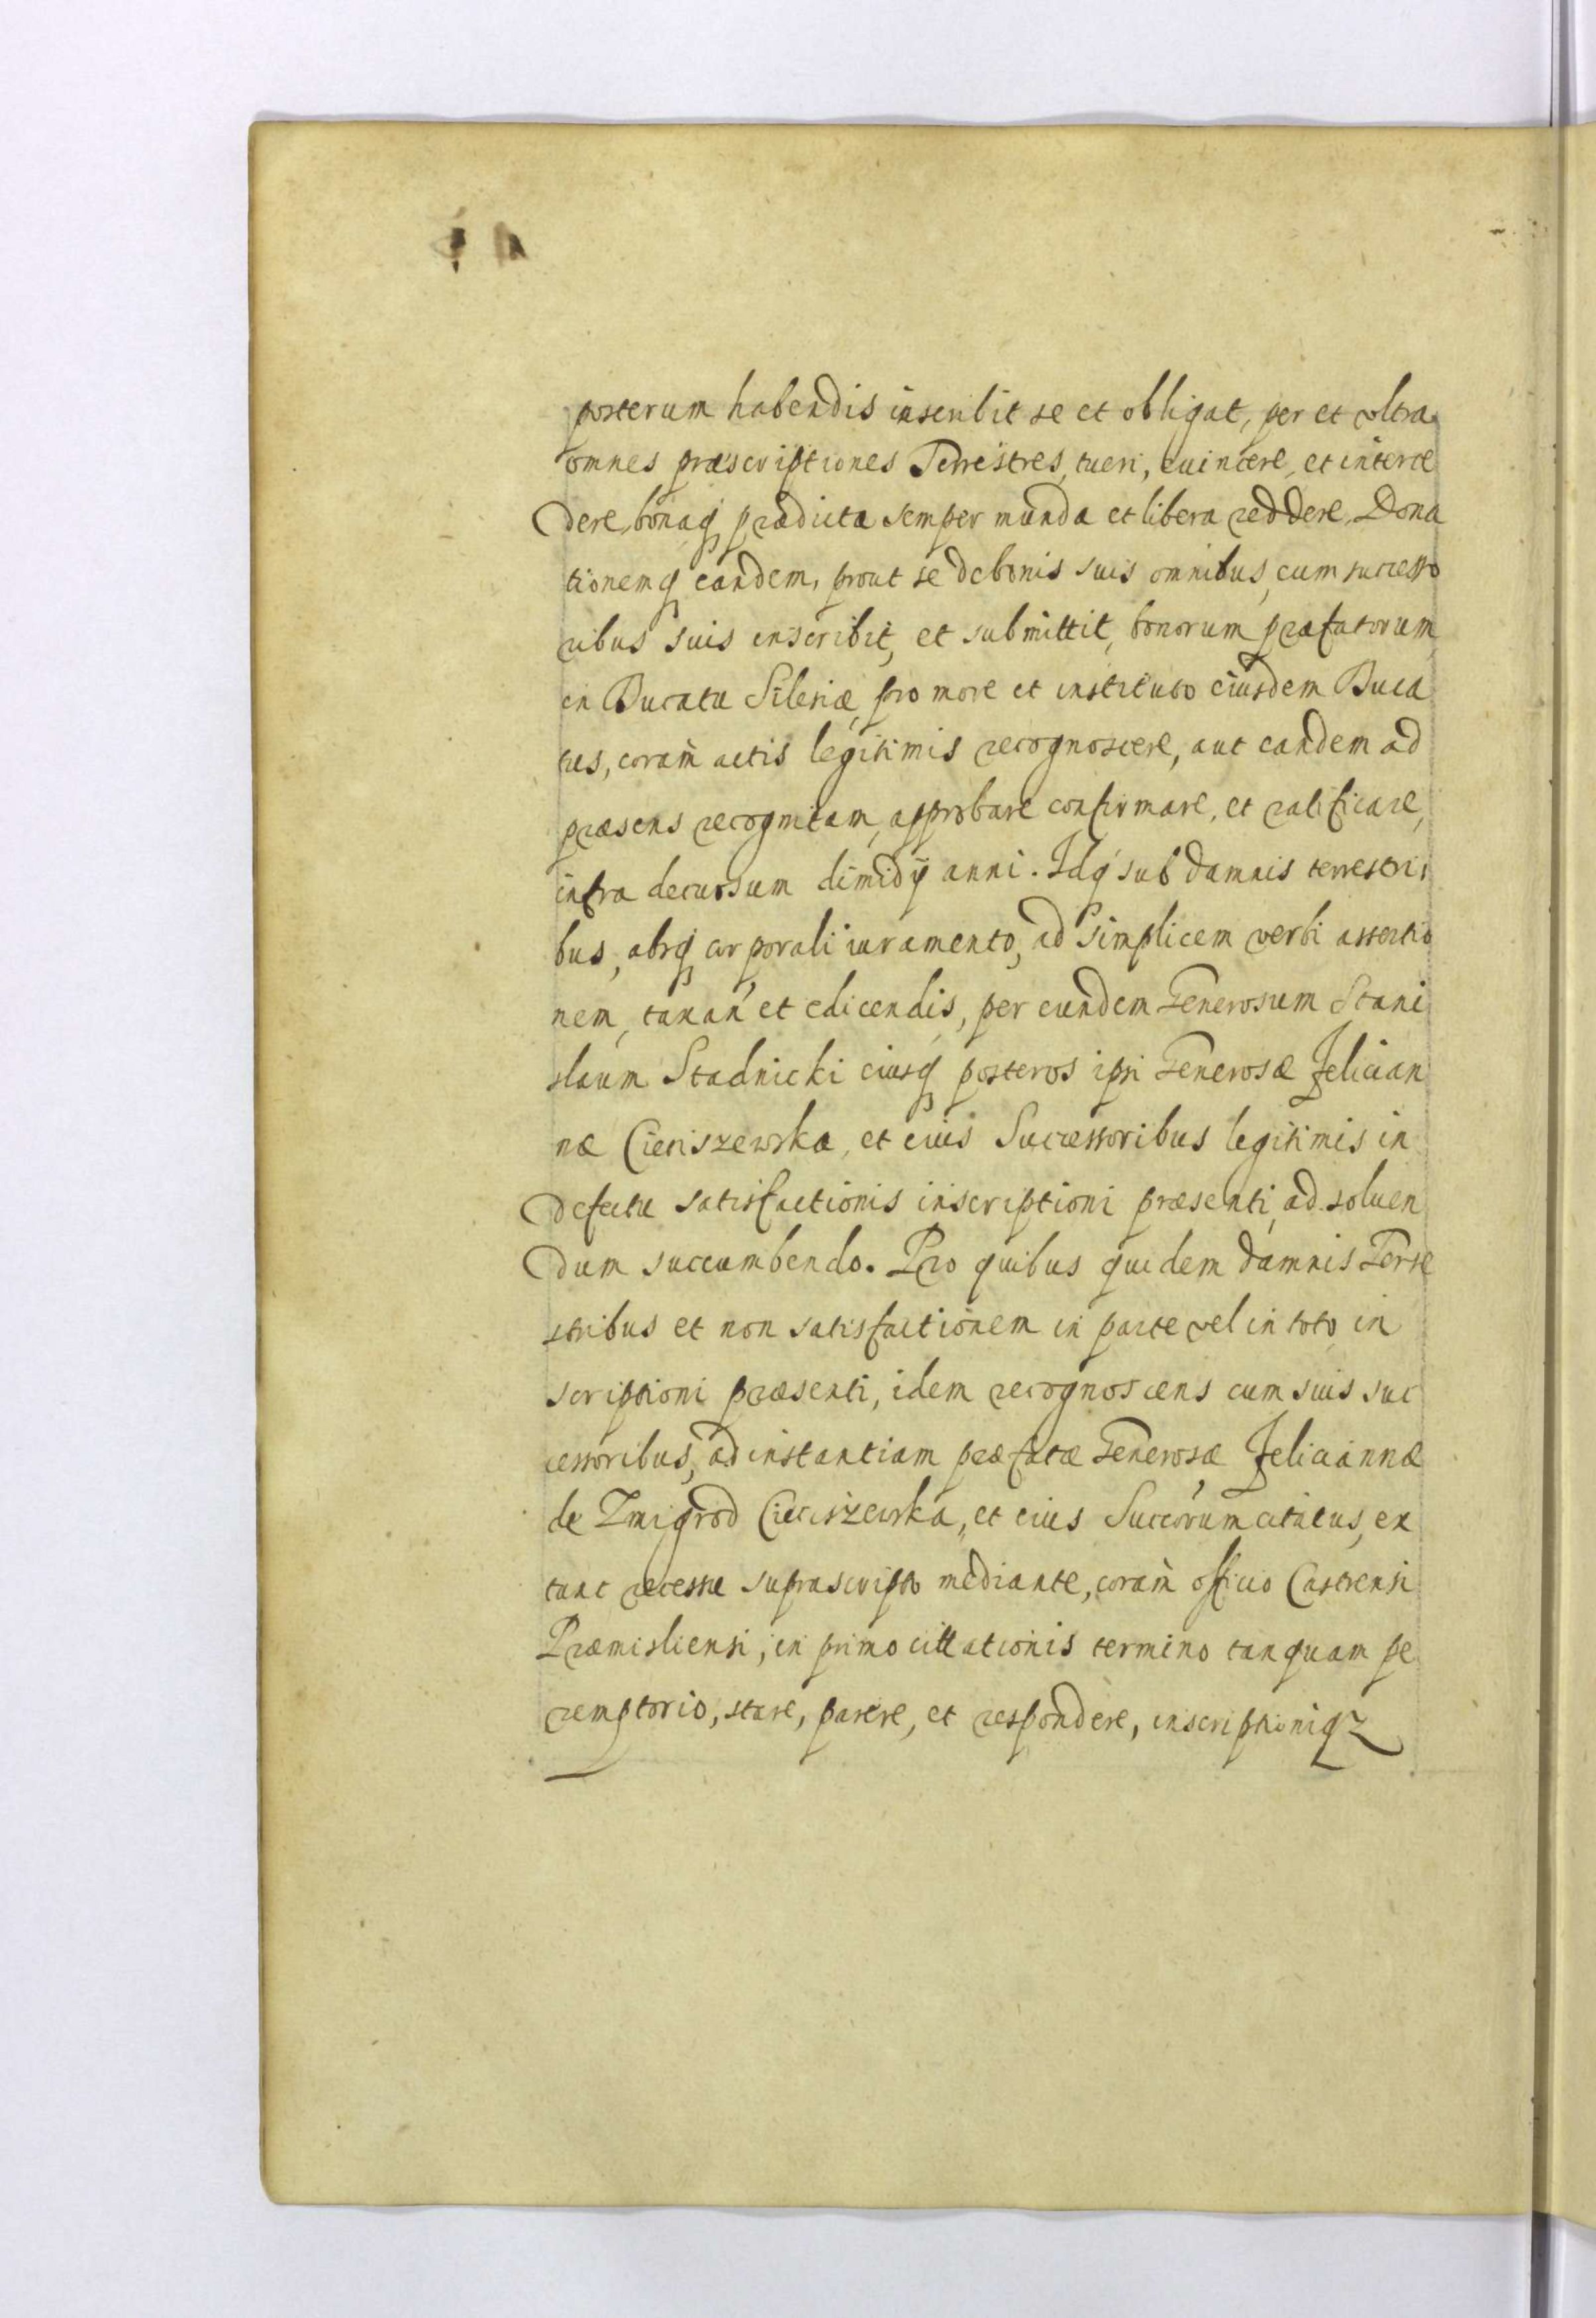 posterum habendis inscribit se et obligat, per et vltra
omnes præscriptiones Terrestres, tueri, euincere, et interce
dere, bonaq prædicta semper munda et libera reddere, Dona
tionemq eandem, prout se de bonis suis omnibus, cum successo
ribus suis inscribit, et submittit, bonorum præfatorum
in Ducatu Silesiæ, pro more et instituto eiusdem Duca
tus, coram actis legitimis recognoscere, aut eandem ad
præsens recognitam, approbare confirmare, et ratificare,
infra decursum dimidy anni. Idq sub damnis terrestri,
bus, absq corporali iuramento, ad simplicem verbi assertio
nem, taxan et edicendis, per eundem Generosum Stani
slaum Stadnicki eiusq posteros ipsi Generosæ Felician
næ Cieciszewska, et eius Successoribus legitimis in
defectu satisfactionis inscriptioni præsenti, ad soluen
dum succumbendo. Pro quibus quidem damnis Terre
stribus et non satisfactionem in parte vel in toto in
scriptioni præsenti, idem recognoscens cum suis suc
cessoribus, ad instantiam præfatæ Generosæ Feliciannæ
de Zmigrod Cieciszewska, et eius Succorum citatus, ex
tunc recessu suprascripto mediante, coram officio Castrensi
Præmisliensi, in primo cittationis termino tanquam pe
remptorio, stare, parere, et respondere, inscriptioniqz